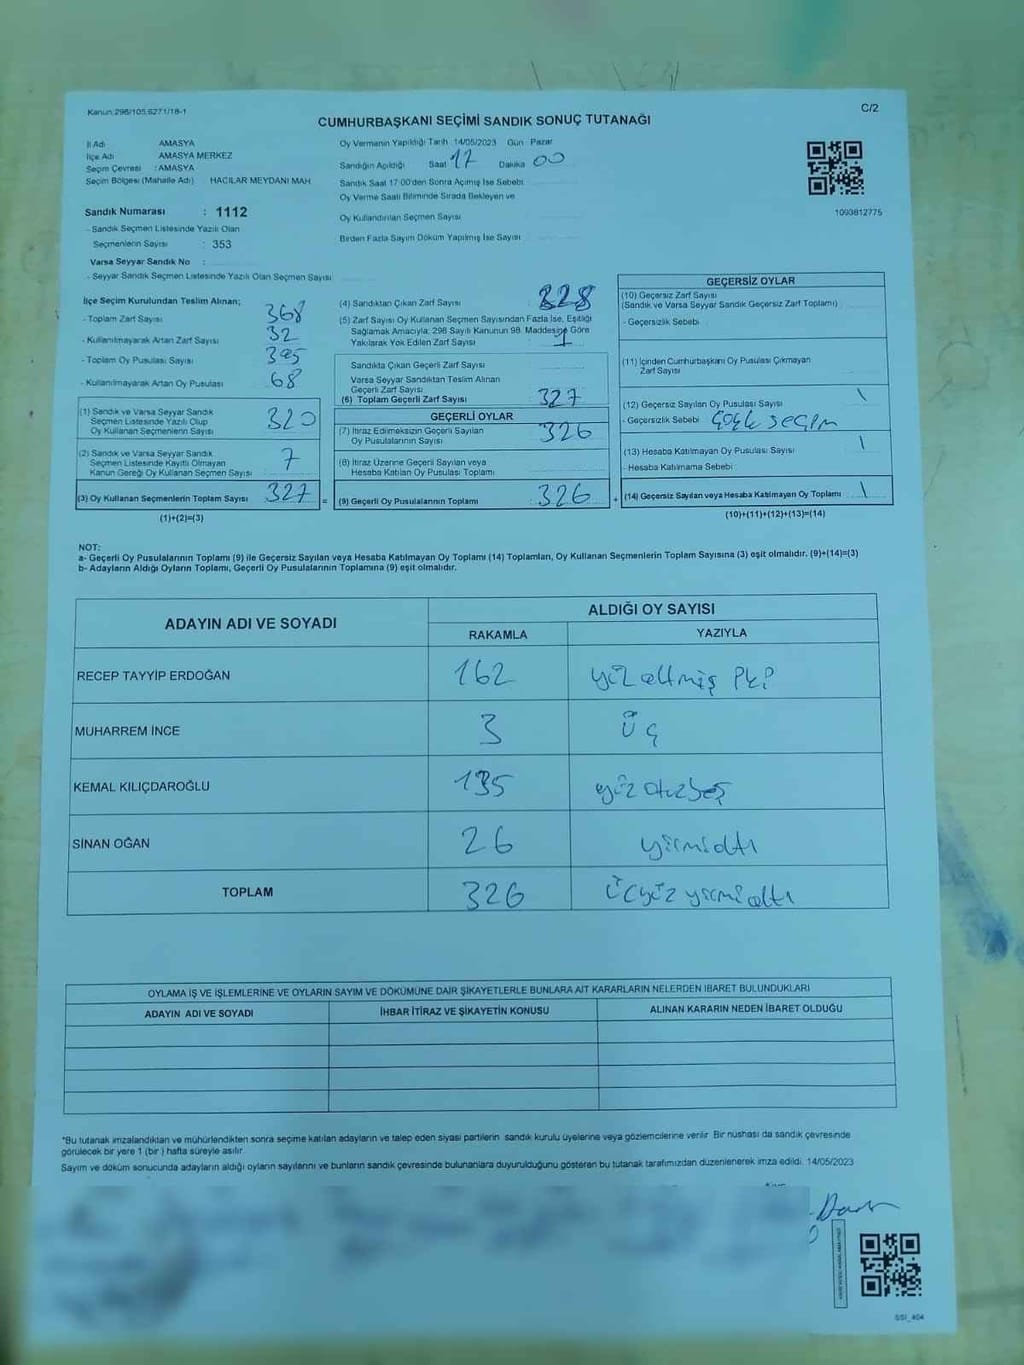 Kanun:298/105,6271/18-1
C/2
CUMHURBAŞKANI SEÇİMİ SANDIK SONUÇ TUTANAĞI
İl Adı AMASYA
İlçe Adı AMASYA MERKEZ
Seçim Çevresi : AMASYA
Seçim Bölgesi (Mahalle Adı) HACILAR MEYDANI MAH
Sandık Numarası : 1112
- Sandık Seçmen Listesinde Yazılı Olan
Seçmenlerin Sayısı : 353
Varsa Seyyar Sandık No :
- Seyyar Sandık Seçmen Listesinde Yazılı Olan Seçmen Sayısı
Oy Vermenin Yapıldığı Tarih 14/05/2023 Gün : Pazar
Sandığın Açıldığı Saat 17 Dakika 00
Sandık Saat 17:00'den Sonra Açılmış İse Sebebi
Oy Verme Saati Bitiminde Sırada Bekleyen ve
Oy Kullandırılan Seçmen Sayısı
Birden Fazla Sayım Döküm Yapılmış İse Sayısı
1093812775
İlçe Seçim Kurulundan Teslim Alınan;
- Toplam Zarf Sayısı 368
- Kullanılmayarak Artan Zarf Sayısı 32
- Toplam Oy Pusulası Sayısı 395
- Kullanılmayarak Artan Oy Pusulası 68
(1) Sandık ve Varsa Seyyar Sandık
Seçmen Listesinde Yazılı Olup
Oy Kullanan Seçmenlerin Sayısı 320
(2) Sandık ve Varsa Seyyar Sandık
Seçmen Listesinde Kayıtlı Olmayan
Kanun Gereği Oy Kullanan Seçmen Sayısı 7
(3) Oy Kullanan Seçmenlerin Toplam Sayısı 327 =
(1)+(2)=(3)
(4) Sandıktan Çıkan Zarf Sayısı 328
(5) Zarf Sayısı Oy Kullanan Seçmen Sayısından Fazla İse, Eşitliği
Sağlamak Amacıyla; 298 Sayılı Kanunun 98. Maddesine Göre
Yakılarak Yok Edilen Zarf Sayısı 1
Sandıkta Çıkan Geçerli Zarf Sayısı
Varsa Seyyar Sandıktan Teslim Alınan
Geçerli Zarf Sayısı
(6) Toplam Geçerli Zarf Sayısı 327
GEÇERLİ OYLAR
(7) İtiraz Edilmeksizin Geçerli Sayılan
Oy Pusulalarının Sayısı 326
(8) İtiraz Üzerine Geçerli Sayılan veya
Hesaba Katılan Oy Pusulası Toplamı
(9) Geçerli Oy Pusulalarının Toplamı 326 +
GEÇERSİZ OYLAR
(10) Geçersiz Zarf Sayısı
(Sandık ve Varsa Seyyar Sandık Geçersiz Zarf Toplamı)
- Geçersizlik Sebebi
(11) İçinden Cumhurbaşkanı Oy Pusulası Çıkmayan
Zarf Sayısı
(12) Geçersiz Sayılan Oy Pusulası Sayısı \
- Geçersizlik Sebebi seçim
(13) Hesaba Katılmayan Oy Pusulası Sayısı \
- Hesaba Katılmama Sebebi
(14) Geçersiz Sayılan veya Hesaba Katılmayan Oy Toplamı \
(10)+(11)+(12)+(13)=(14)
NOT:
a- Geçerli Oy Pusulalarının Toplamı (9) ile Geçersiz Sayılan veya Hesaba Katılmayan Oy Toplamı (14) Toplamları, Oy Kullanan Seçmenlerin Toplam Sayısına (3) eşit olmalıdır. (9)+(14)=(3)
b- Adayların Aldığı Oyların Toplamı, Geçerli Oy Pusulalarının Toplamına (9) eşit olmalıdır.
ADAYIN ADI VE SOYADI
ALDIĞI OY SAYISI
RAKAMLA YAZIYLA
RECEP TAYYİP ERDOĞAN 162 yüz altmış
MUHARREM İNCE 3 üç
KEMAL KILIÇDAROĞLU 135 yüz otuzbeş
SİNAN OĞAN 26 yirmialtı
TOPLAM 326 üçyüz yirmialtı
OYLAMA İŞ VE İŞLEMLERİNE VE OYLARIN SAYIM VE DÖKÜMÜNE DAİR ŞİKAYETLERLE BUNLARA AİT KARARLARIN NELERDEN İBARET BULUNDUKLARI
ADAYIN ADI VE SOYADI İHBAR İTİRAZ VE ŞİKAYETİN KONUSU ALINAN KARARIN NEDEN İBARET OLDUĞU
*Bu tutanak imzalandıktan ve mühürlendikten sonra seçime katılan adayların ve talep eden siyasi partilerin sandık kurulu üyelerine veya gözlemcilerine verilir. Bir nüshası da sandık çevresinde
görülecek bir yere 1 (bir) hafta süreyle asılır.
Sayım ve döküm sonucunda adayların aldığı oyların sayılarını ve bunların sandık çevresinde bulunanlara duyurulduğunu gösteren bu tutanak tarafımızdan düzenlenerek imza edildi. 14/05/2023
SSI_404